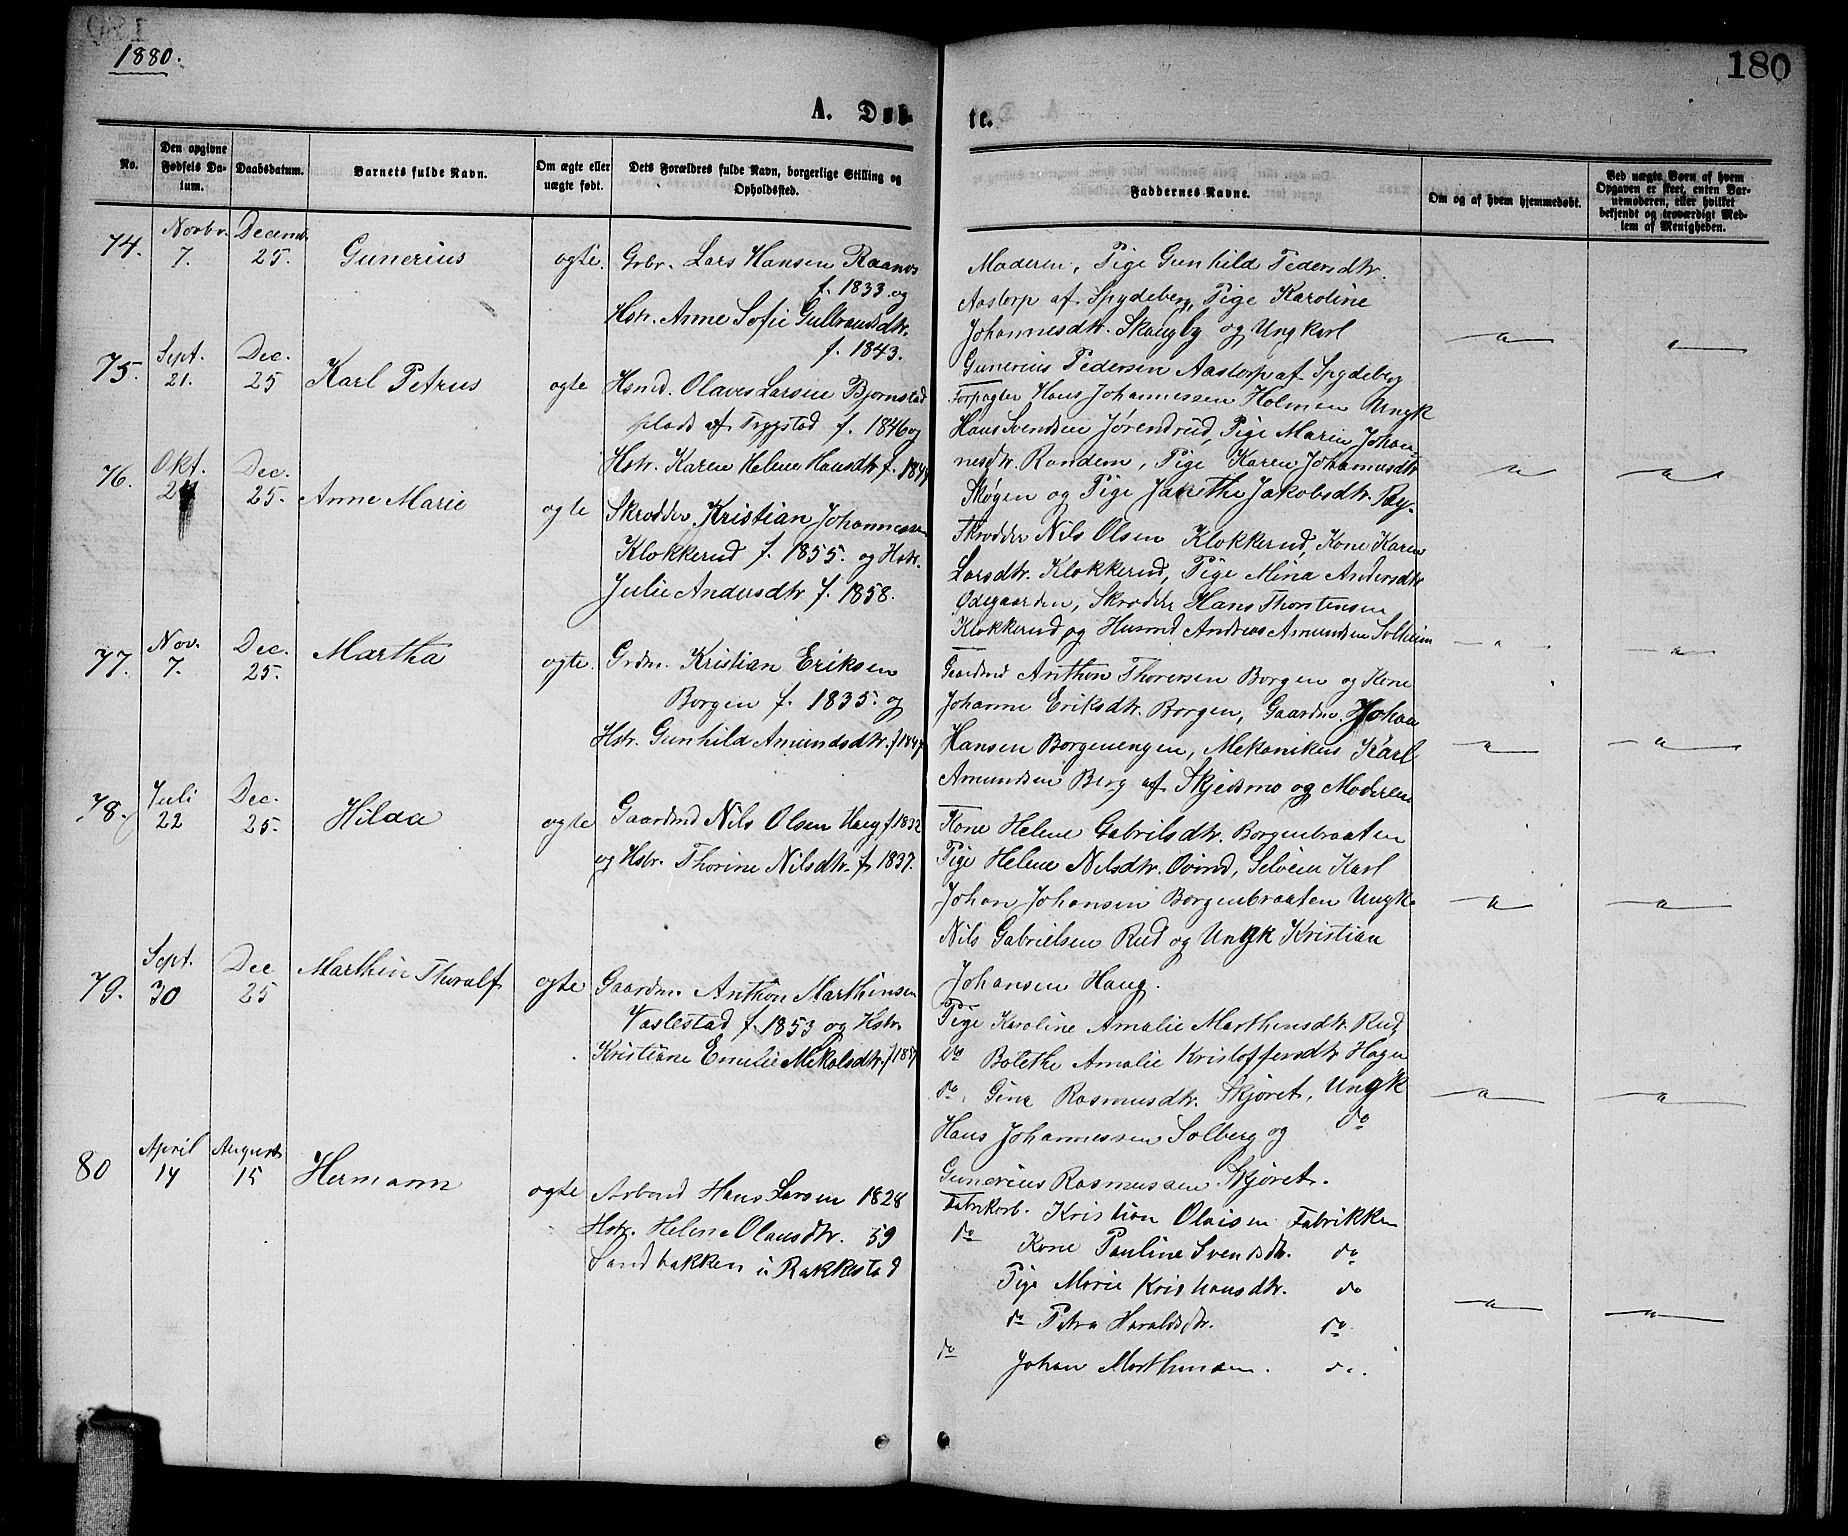 1880.
180
A. Døb
te.
No.
Den opgivne Fødsels Datum.
Daabsdatum.
Barnets fulde Navn.
Om ægte eller uægte født.
Dets Forældres fulde Navn, borgerlige Stilling og Opholdssted.
Faddernes Navne.
Om og af hvem hjemmedøbt.
Ved uægte Børn af hvem Opgaven er skeet, enten Barnemoderen, eller hvilket bekjendt og troværdigt Medlem af Menigheden.
74. Novbr. 7. Decemb. 25. Gunerius ægte. Grbr. Lars Hansen Raanås
f. 1833 og
Hstr. Anne Sofie Gulbrandsdtr.
f. 1843.
Moderen, Pige Gunhild Pedersdtr.
Aastorp af Spydeberg, Pige Karoline
Johannesdtr. Skaugby og Ungkarl
Gunerius Pedersen Aastorp af Spydeberg
75. Sept. 21. Dec. 25 Karl Petrus ægte Hsmd. Olaves Larsen Bjørnstad
plads af Trygstad f. 1846 og
Hstr. Karen Helene Hansdtr f.
Forpagter Hans Johannessen Holmen Ungk
Hans Svendsen Jørendrud, Pige Maren Johan-
nesdtr. Randem, Pige Karen Johannesdtr
Skøgen og Pige Janethe Jakobsdtr. Ry.
76. Okt. Dec. 25. Anne Marie ægte Skrædder Kristian Johannessen
Klokkerud f. 1855. og Hstr.
Julie Andersdtr f. 1858.
Skrædder Nils Olsen Klokkerud, Kone Karen
Larsdtr. Klokkerud, Pige Mina Andersdtr
Ødegaarden, Skrædder Hans Thorstensen
Klokkerud og Husmd Andreas Amundsen Solheim
77. Nov. 7. Dec. 25. Martha ægte. Grdm. Kristian Eriksen
Borgen f. 1835. og
Hstr. Gunhild Amundsdtr. f
Gaardmd Anthon Thoresen Borgen og Kone
Johanne Eriksdtr. Borgen, Gaardm. Johan
Hansen Borgenengen, Mekanikus Karl
Amundsen Berg af Skjedsmo og Moderen
78. Juli 22 Dec. 25. Hilda ægte Gaardmd Nils Olsen Haug f 1832
og Hstr. Thorine Nilsdtr. f. 1837.
Kone Helene Gabrilsdtr. Borgenbraaten
Pige Helene Nilsdtr. Ovind, Selveier Karl
Johan Johansen Borgenbraaten Ungk.
Nils Gabrielsen Rud og Ungk Kristian
Johansen Haug.
79. Sept. 30 Dec 25 Marthin Thoralf ægte Gaardm. Anthon Marthinsen
Vaslestad f. 1853 og Hstr.
Kristiane Emilie Mikalsdtr. f
Pige Karoline Amalie Marthinsdtr. Rud
do Bolethe Amalie Kristoffersdtr Hagen
do. Gina Rasmusdtr. Skjøret, Ungk
Hans Johannessen Solberg og do
Gunerius Rasmussen Skjøret.
80 April 14 August 15 Hermann ægte Arbmd Hans Larsen 1828
Hstr. Helene Olausdtr. 59
Sandbakken i Rakkestad
Fabrikarb. Kristian Olaisen Fabrikken
do Kone Pauline Svendsdtr. do
Pige Marie Kristiansdtr. do
do Petra Haraldsdtr. do
do Johan Marthinsen. do.